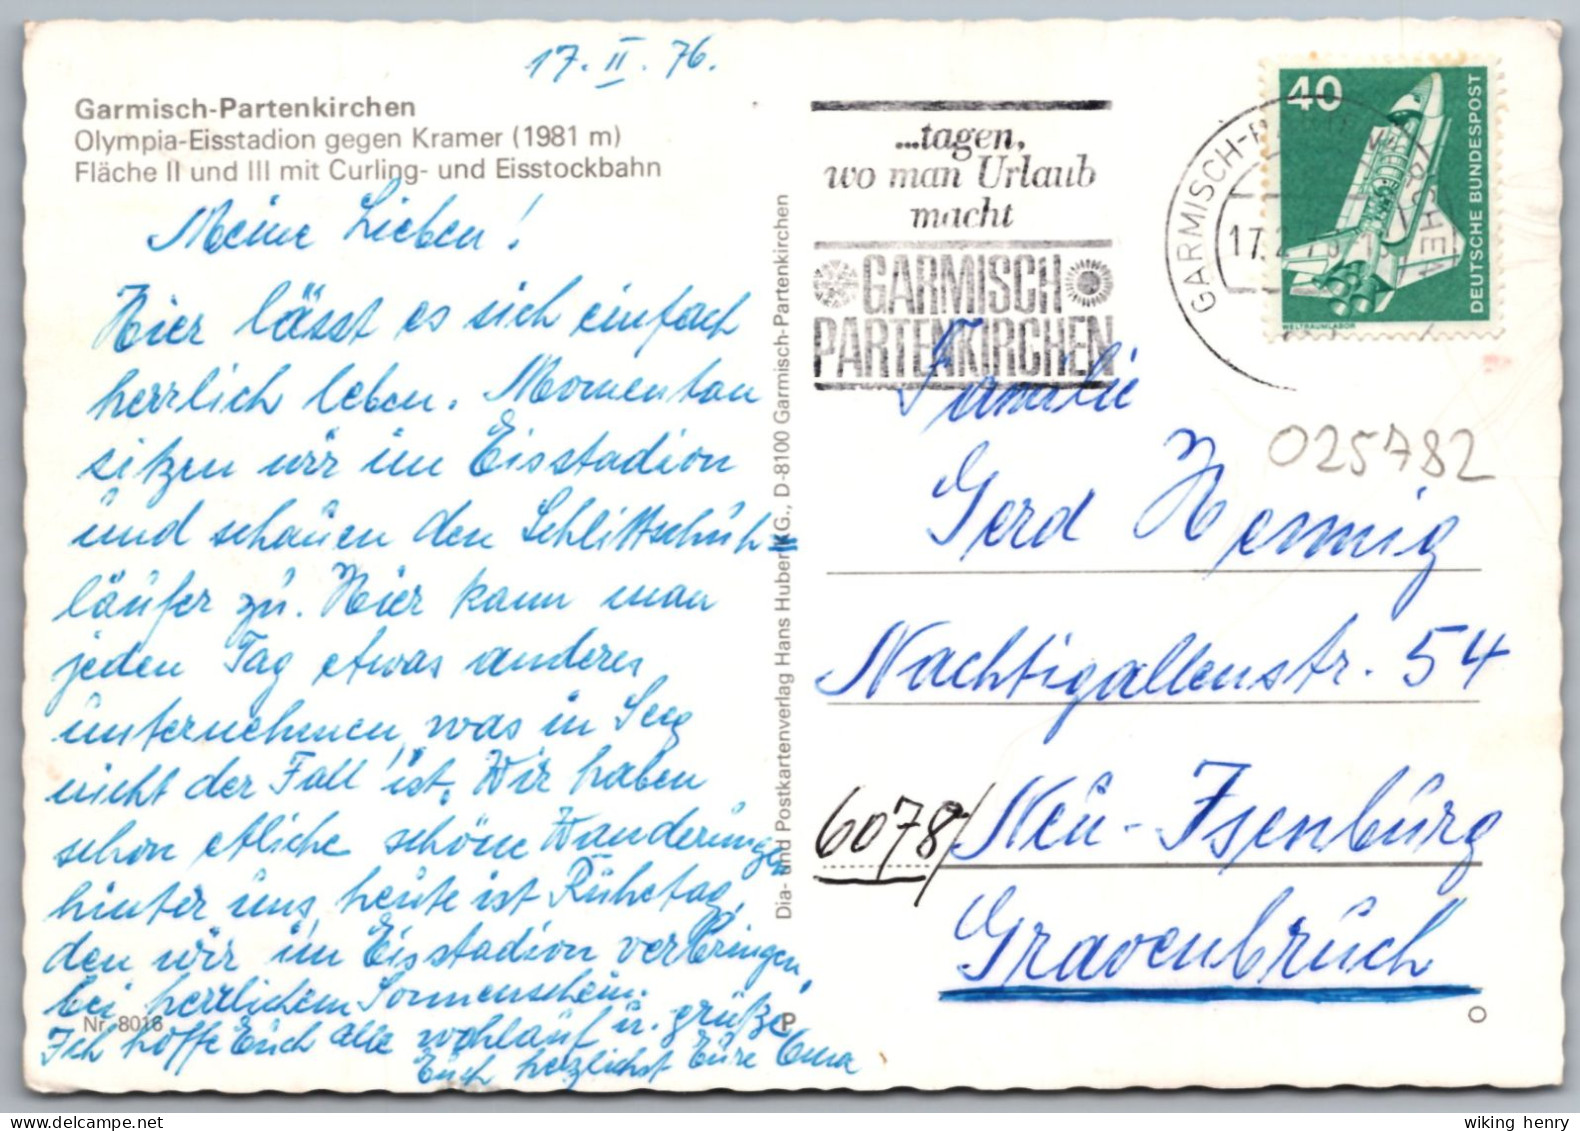 17. II. 76.
Garmisch-Partenkirchen
Olympia-Eisstadion gegen Kramer (1981 m)
Fläche II und III mit Curling- und Eisstockbahn
Meine Lieben!
Hier lässt es sich einfach
herrlich leben. Momentan
sitzen wir im Eisstadion
und schauen den Schlittschuh=
läufer zu. Hier kann man
jeden Tag etwas anderes
unternehmen, was in Seeg
nicht der Fall ist. Wir haben
schon etliche schöne Wanderungen
hinter uns, heute ist Ruhetag,
den wir im Eisstadion verbringen,
bei herrlichem Sonnenschein.
Nr. 8016
Ich hoffe Euch alle wohlauf u. grüße
Euch herzlichst Eure Oma
P
Dia- und Postkartenverlag Hans Huber KG., D-8100 Garmisch-Partenkirchen
...tagen,
wo man Urlaub
macht
GARMISCH
PARTENKIRCHEN
GARMISCH-PARTENKIRCHEN
17.2.76
40
DEUTSCHE BUNDESPOST
WELTRAUMLABOR
025782
Familie
Gerd Hennig
Nachtigallenstr. 54
6078/ Neu-Isenburg
Gravenbruch
wiking henry